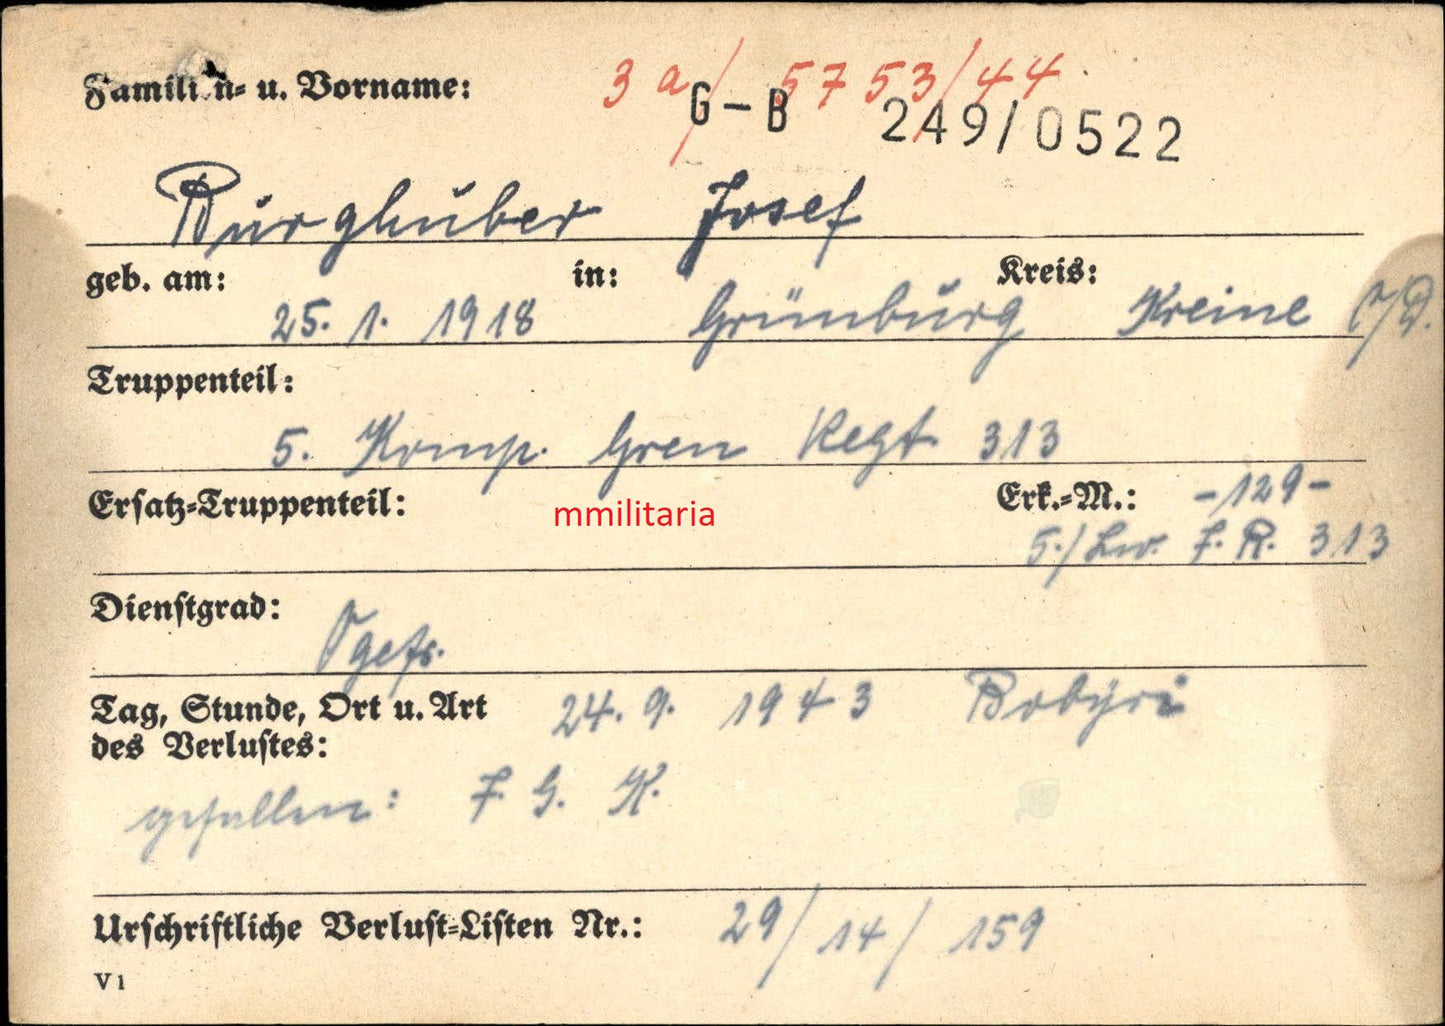 3a/5753/44
G-B 249/0522
Familien- u. Vorname:
Burghuber Josef
geb. am: in: Kreis:
25. 1. 1918 Grünburg
Truppenteil:
5. Komp. Gren Regt 313
Ersatz-Truppenteil: mmilitaria Erk.-M.: -129-
5./Lw. F. R. 313
Dienstgrad:
Ogefr.
Tag, Stunde, Ort u. Art 24. 9. 1943
des Verlustes:
gefallen: F. G. K.
Urschriftliche Verlust-Listen Nr.: 29/14/159
V1